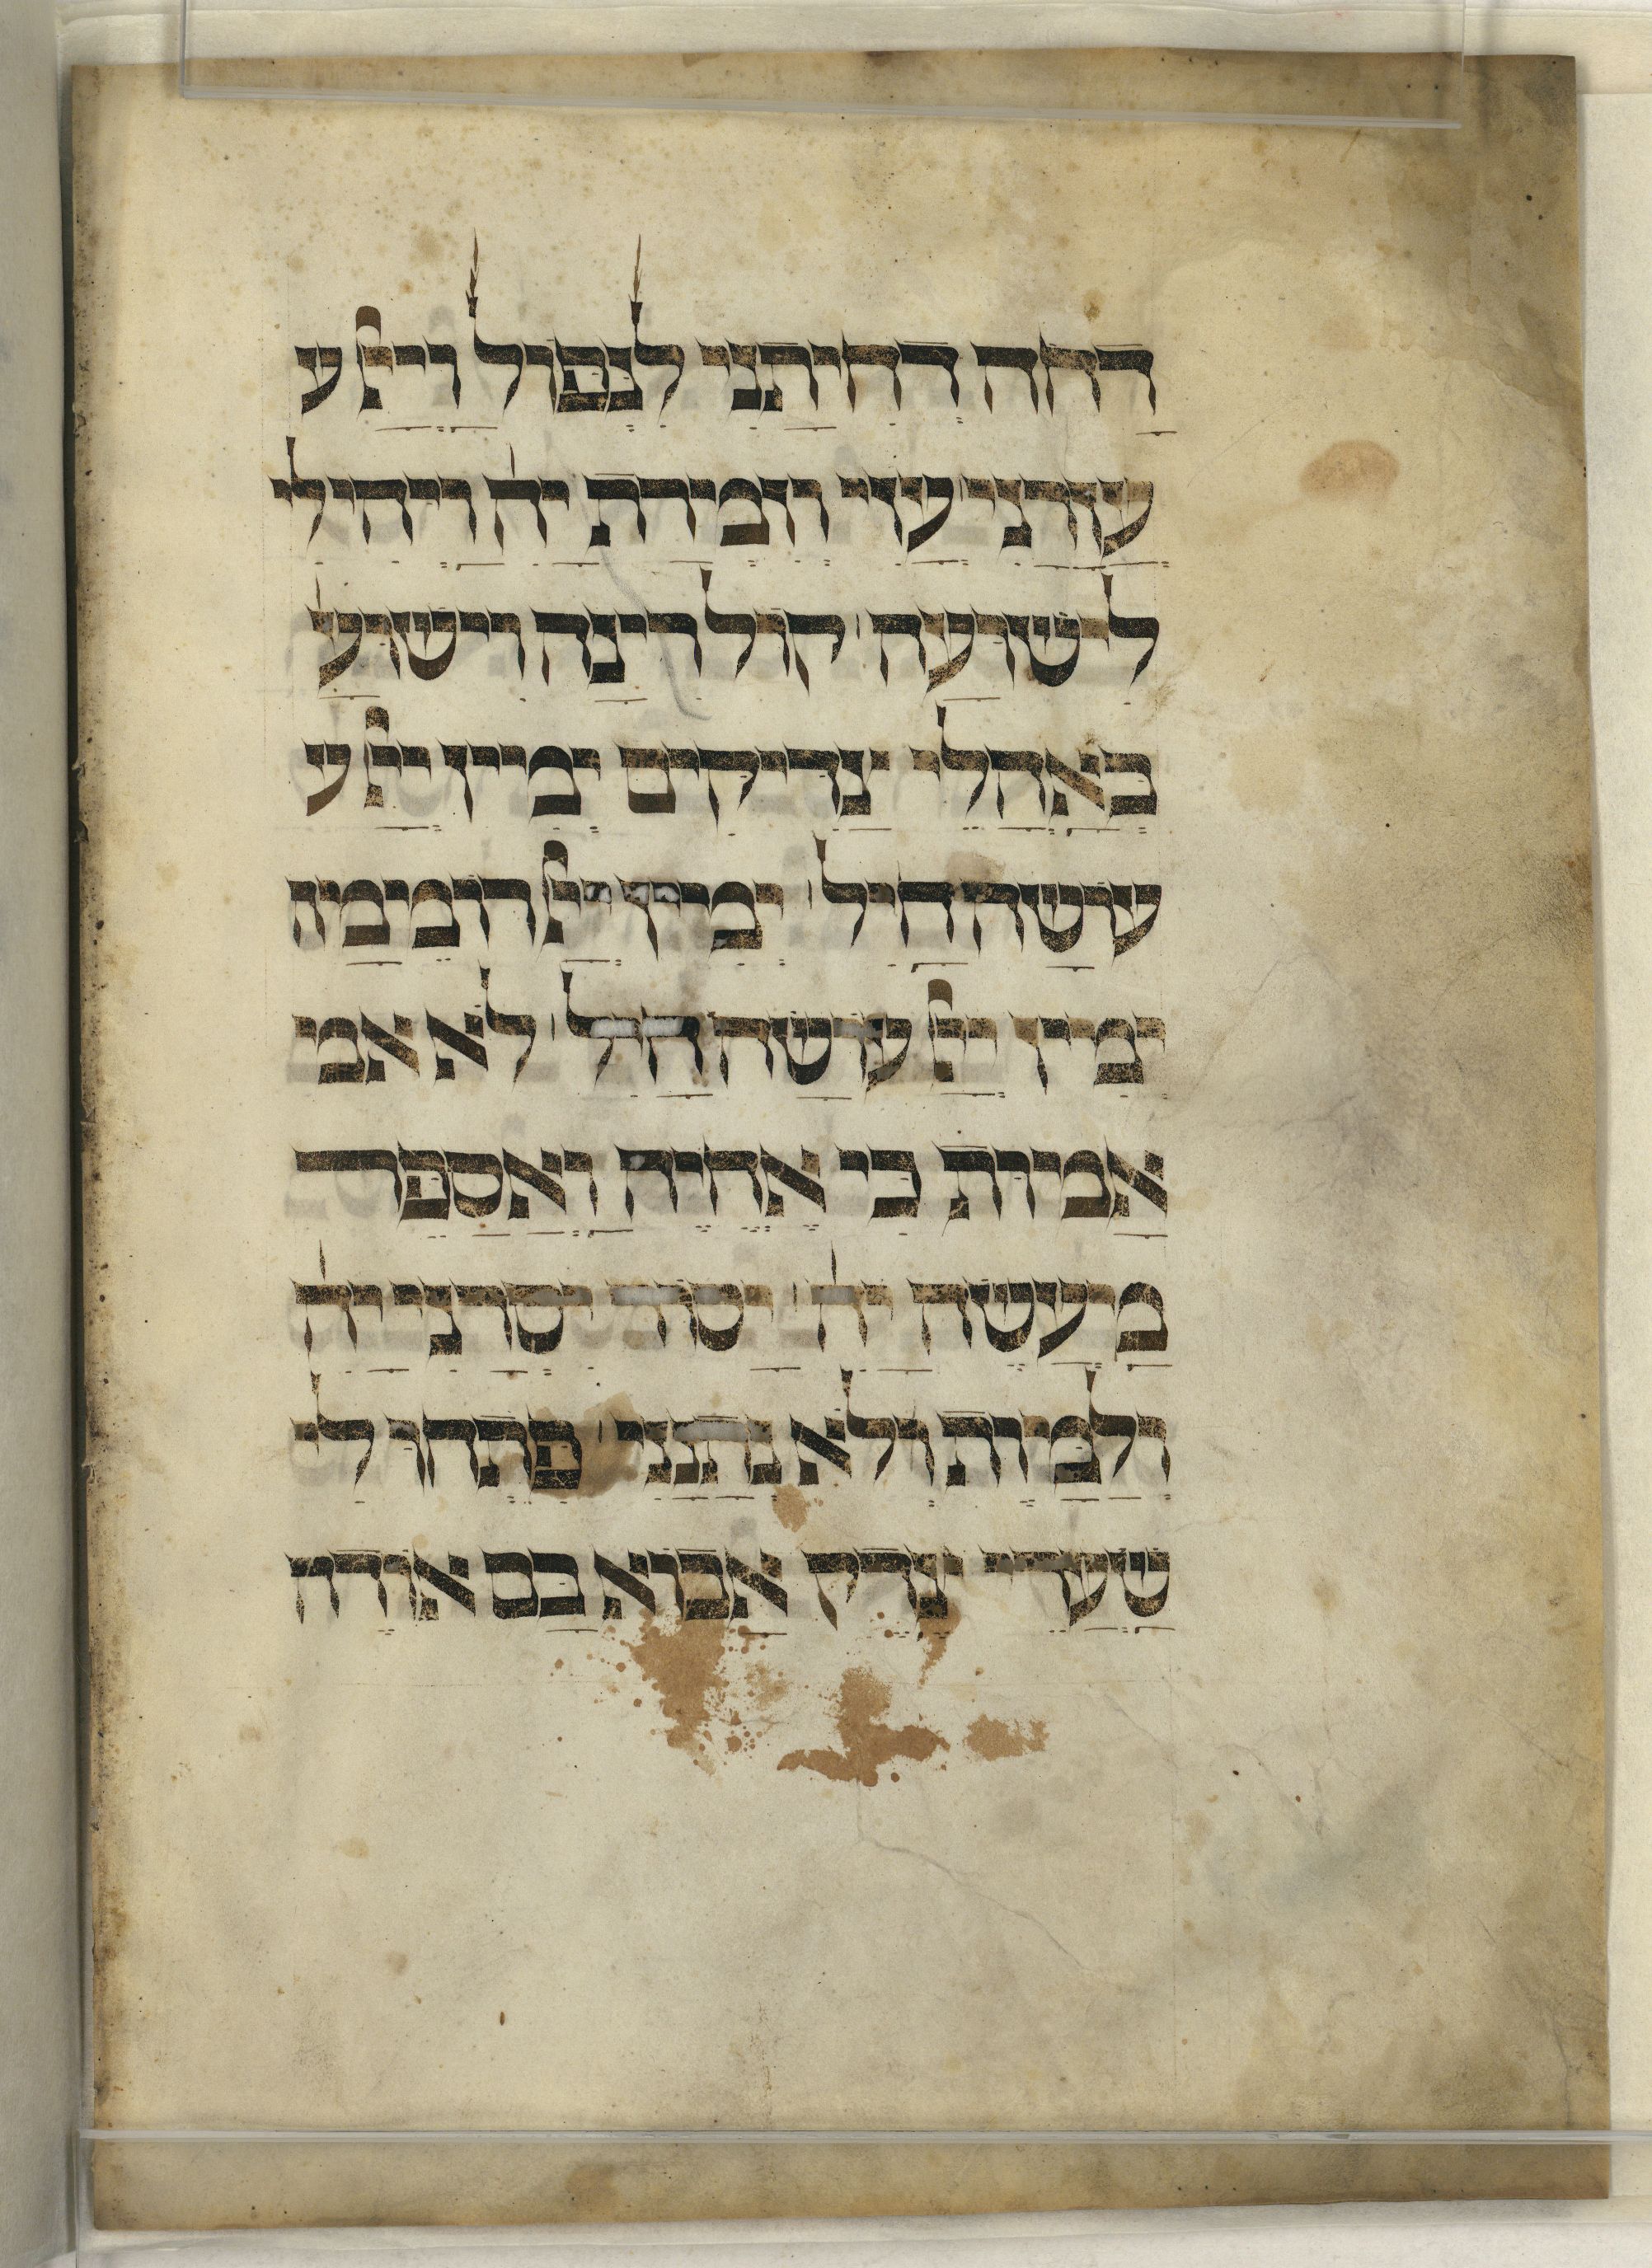 דחה דחיתני לנפול ויי ע
עזרני עזי וזמירת יה ויהי לי
לישועה קול רינה וישוע
באהלי צדיקים ימין יי ע
עושה חיל ימין יי רומימה
ימין יי עושה חיל לא אמי
אמות כי אחיה ואספר
מעשה יה יסור יסרני יה
ולמות ולא נתנני פתחו לי
שערי צדק אבוא בם אודה